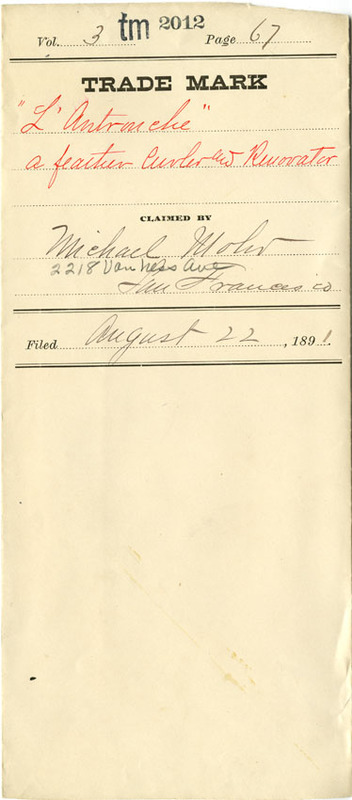 tm 2012
Vol. 3 Page 67
TRADE MARK
"L'Autruche"
a feather Curler and Renovater
CLAIMED BY
Michael Mohr
2218 Van Ness Ave
San Francisco
Filed August 22, 1891.